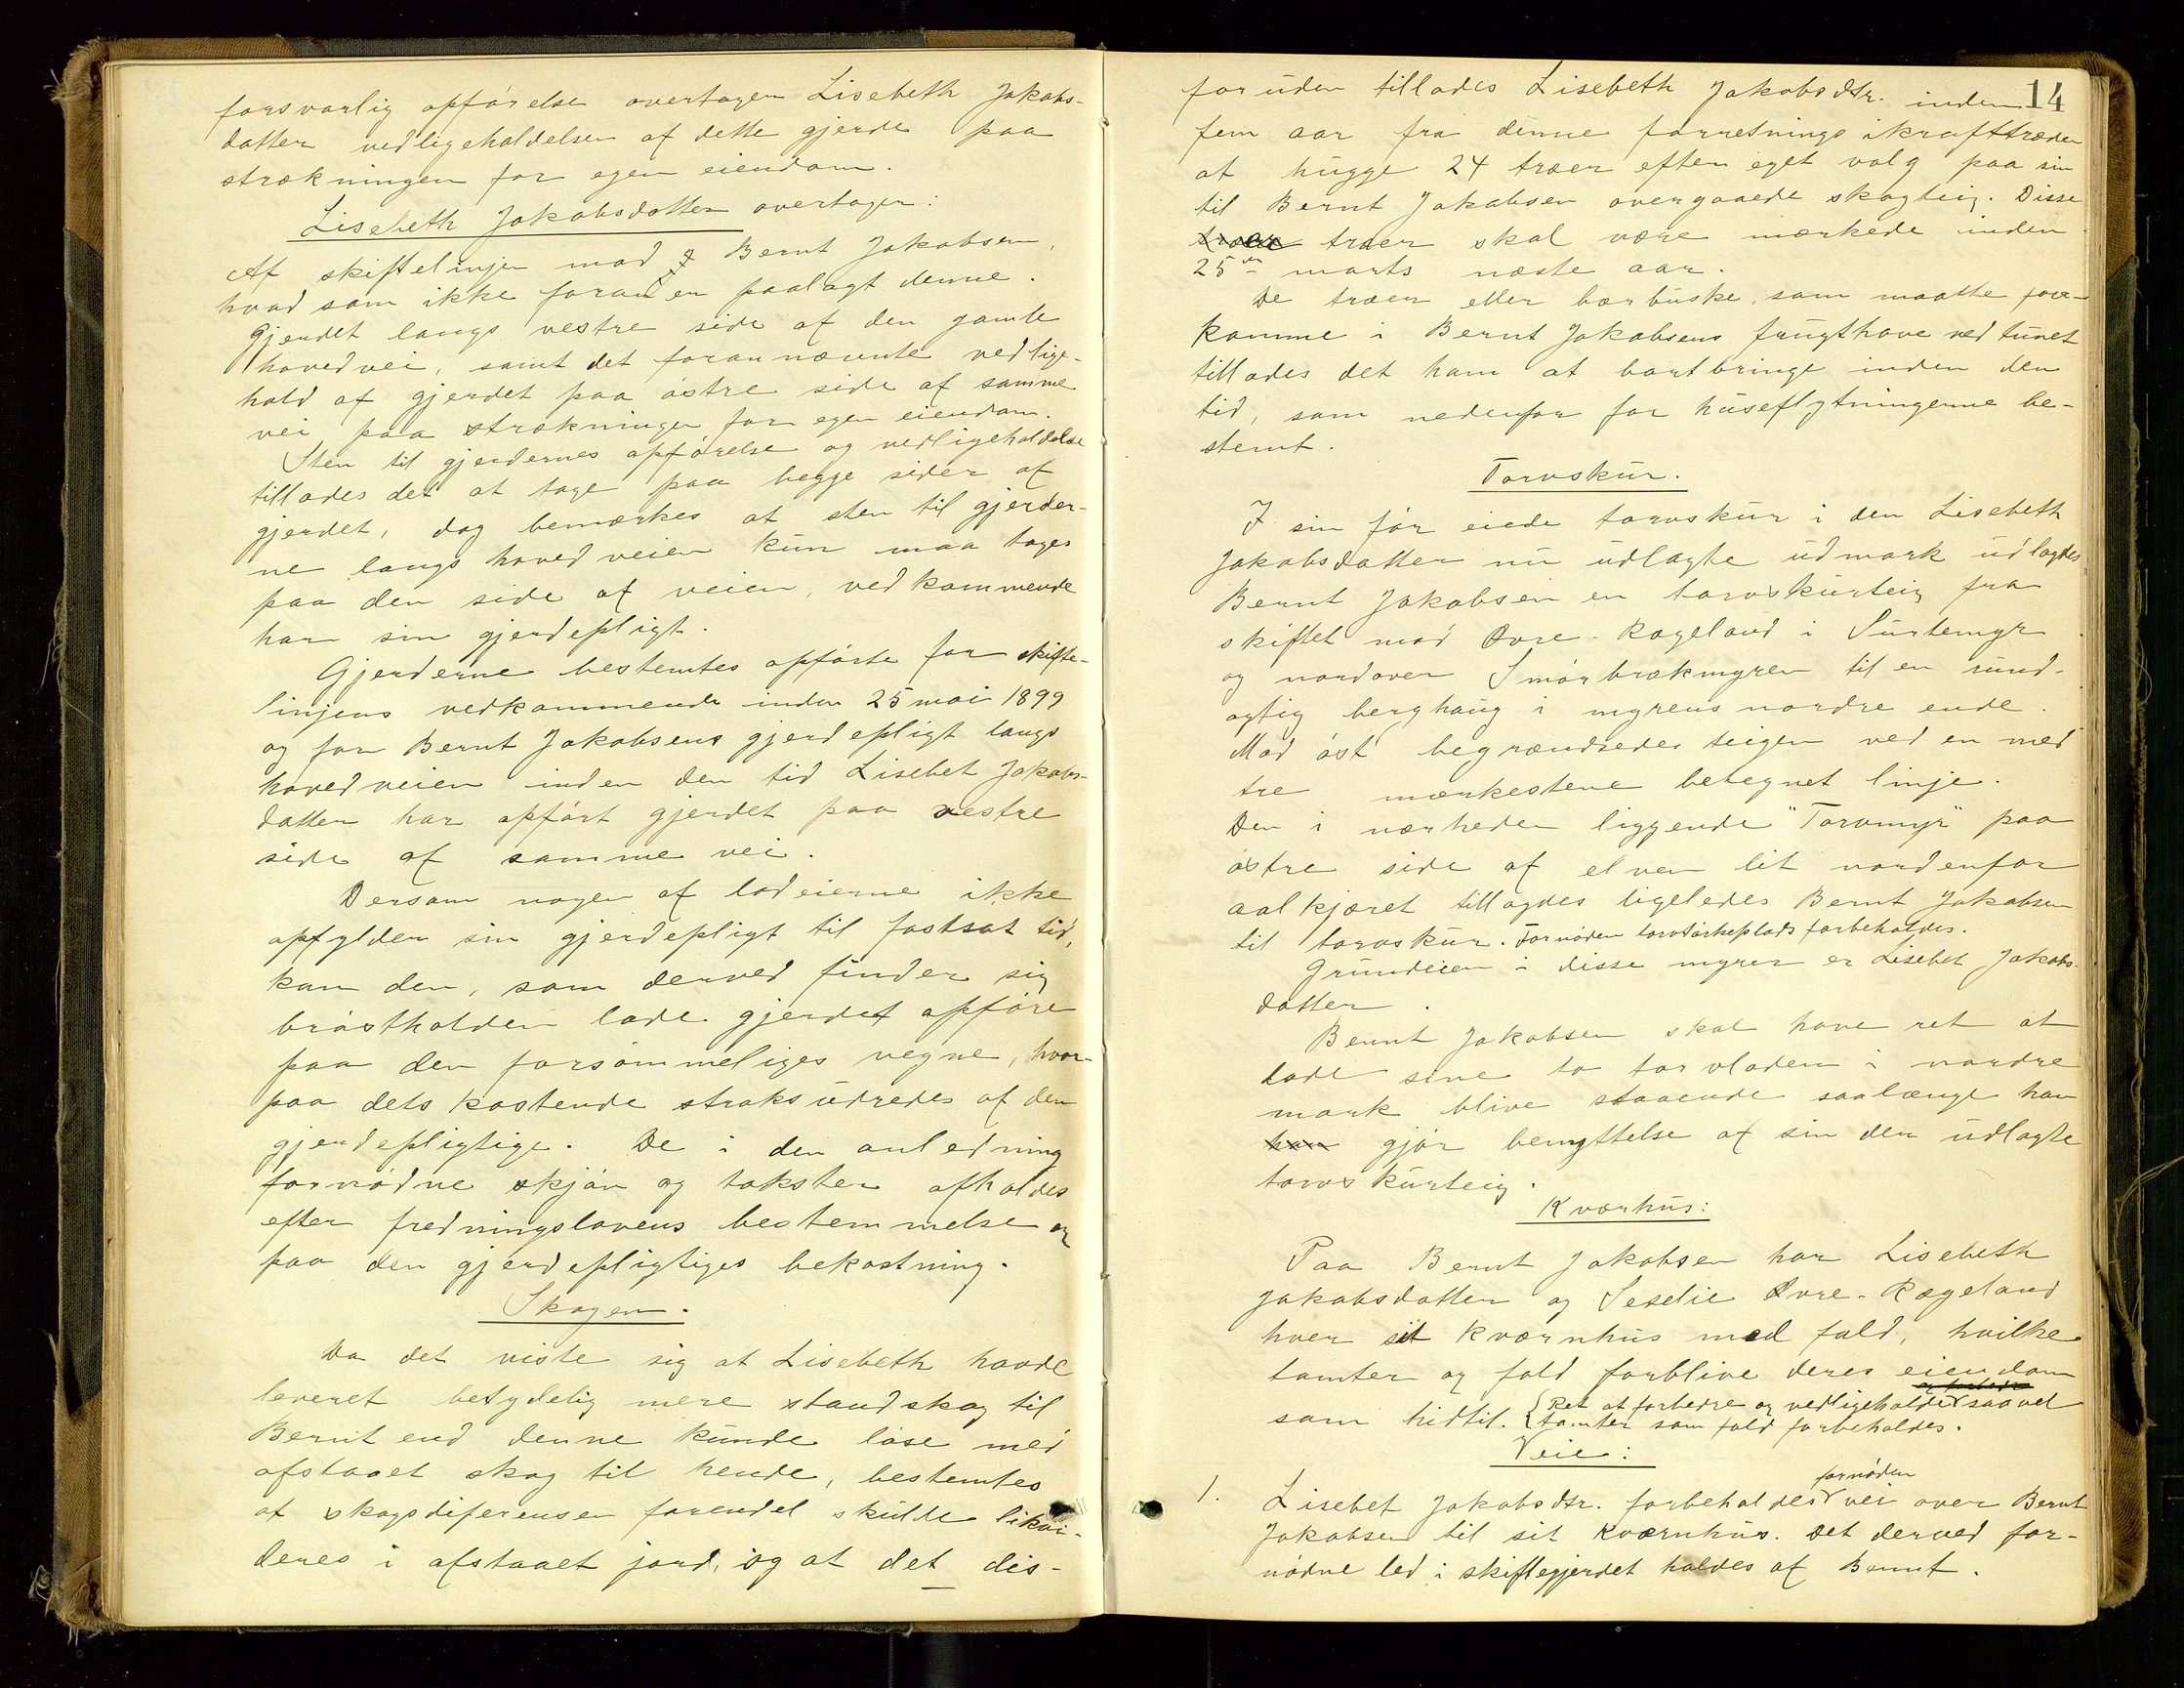 forsvarlig opførelse overtagen Lisebeth Jakobs-
datter vedligeholdelsen af dette gjerde paa
strækningen for egen eiendom.
Lisebeth Jakobsdatter overtager:
Af skiftelinjen mod Bernt Jakobsen,
hvad som ikke foran er paalagt denne.
Gjerdet langs vestre side af den gamle
hovedvei, samt det forannævnte vedlige-
hold af gjerdet paa østre side af samme
vei paa strækningen for egen eiendom.
Sten til gjerdernes opførelse og vedligeholdelse
tillades det at tage paa begge sider af
gjerdet, dog bemærkes at sten til gjerder-
ne langs hovedveien kun maa tages
paa den side af veien, vedkommende
har sin gjerdepligt.
Gjerderne bestemtes opførte for skifte-
linjens vedkommende inden 25 mai 1899
og for Bernt Jakobsens gjerdepligt langs
hovedveien inden den tid Lisebet Jakobs-
datter har opført gjerdet paa vestre
side af samme vei.
Dersom nogen af lodeierne ikke
opfylder sin gjerdepligt til fastsat tid,
kan den, som derved finder sig
brøstholden lade gjerdet opføre
paa den forsømmeliges vegne, hvor-
paa dets kostende straks udredes af den
gjerdepligtige. De i den anledning
fornødne skjøn og takster afholdes
efter fredningslovens bestemmelse og
paa den gjerdepligtiges bekostning.
Skogen.
Da det viste sig at Lisebeth havde
leveret betydelig mere standskog til
Bernt end denne kunde løse med
afstaaet skog til hende, bestemtes
at skogsdiferensen forendel skulde likvi-
deres i afstaaet jord, og at det dis-
14
foruden tillades Lisebeth Jakobsdtr. inden
fem aar fra denne forretnings ikrafttræden
at hugge 24 træer efter eget valg paa sin
til Bernt Jakobsen overgaaede skogteig. Disse
træer skal være mærkede inden
25de marts næste aar.
De træer eller bærbuske, som maatte fore-
komme i Bernt Jakobsens frugthave ved tunet
tillades det ham at bortbringe inden den
tid, som nedenfor for huseflytningerne be-
stemt.
Torvskur.
I sin før eiede torvskur i den Lisebeth
Jakobsdatter nu udlagte udmark udlagdes
Bernt Jakobsen en torvskurteig fra
skiftet mod Øvre-Rageland i Surtemyr
og nordover Smørbrækmyren til en rund-
agtig berghaug i myrens nordre ende.
Mod øst begrændsedes teigen ved en med
tre mærkestene betegnet linje.
Den i nærheden liggende "Torvmyr" paa
østre side af elven lit nordenfor
aalkjæret tillagdes ligeledes Bernt Jakobsen
til torvskur. Fornøden torvtørkeplads forbeholdes.
Grundeier i disse myrer er Lisebet Jakobs-
datter.
Bernt Jakobsen skal have ret at
lade sine to torvladen i nordre
mark blive staaende saalænge han
han gjør benyttelse af sin der udlagte
torvskurteig.
Kværhus:
Paa Bernt Jakobsen har Lisebeth
Jakobsdatter og Seselie Øvre-Rageland
hver sit kværnhus med fald, hvilke
tomter og fald forblive deres eiendom
som hidtil. Ret at forbedre og vedligeholde saavel
tomter som fald forbeholdes.
Veie:
fornøden
1. Lisebet Jakobsdtr. forbeholdes vei over Bernt
Jakobsen til sit kværnhus. Det derved for-
nødne led i skiftegjerdet holdes af Bernt.